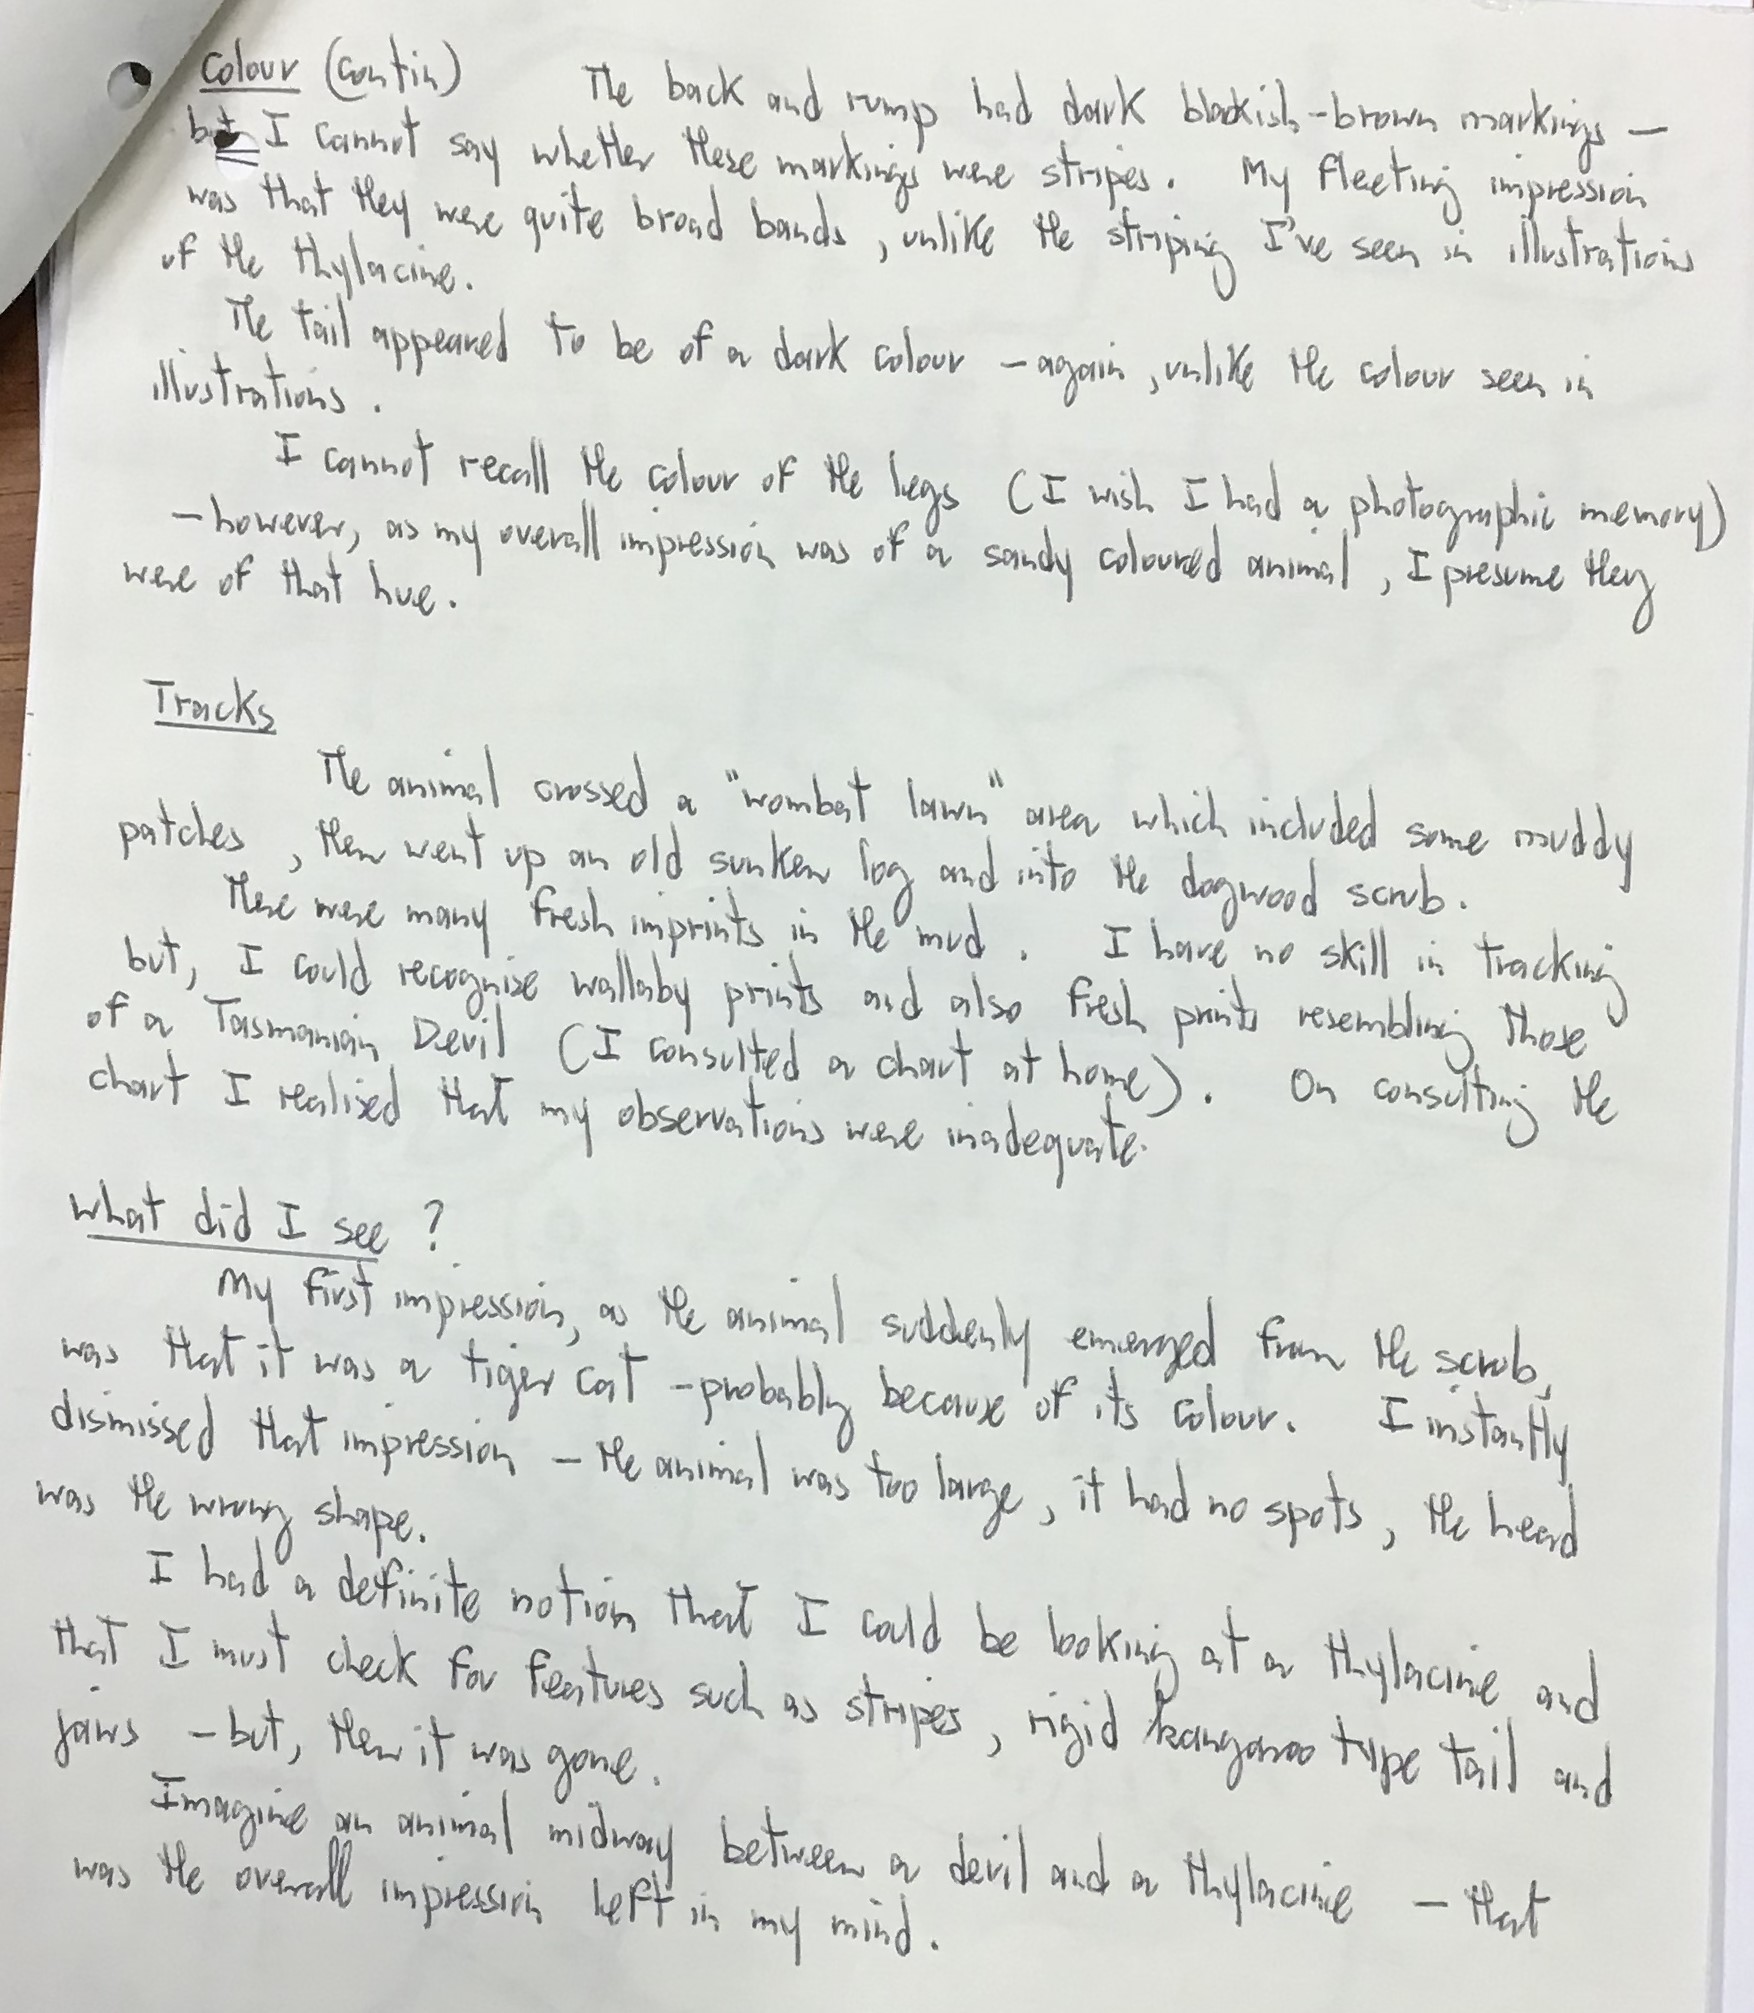 Colour (contin) The back and rump had dark blackish-brown markings —
but I cannot say whether these markings were stripes. My fleeting impression
was that they were quite broad bands, unlike the striping I've seen in illustrations
of the thylacine.
The tail appeared to be of a dark colour — again, unlike the colour seen in
illustrations.
I cannot recall the colour of the legs (I wish I had a photographic memory)
— however, as my overall impression was of a sandy coloured animal, I presume they
were of that hue.
Tracks
The animal crossed a "wombat lawn" area which included some muddy
patches, then went up an old sunken log and into the dogwood scrub.
There were many fresh imprints in the mud. I have no skill in tracking
but, I could recognise wallaby prints and also fresh prints resembling those
of a Tasmanian Devil (I consulted a chart at home). On consulting the
chart I realised that my observations were inadequate.
What did I see?
My first impression, as the animal suddenly emerged from the scrub,
was that it was a tiger cat - probably because of its colour. I instantly
dismissed that impression — the animal was too large, it had no spots, the head
was the wrong shape.
I had a definite notion that I could be looking at a thylacine and
that I must check for features such as stripes, rigid kangaroo type tail and
jaws — but, then it was gone.
Imagine an animal midway between a devil and a thylacine — that
was the overall impression left in my mind.